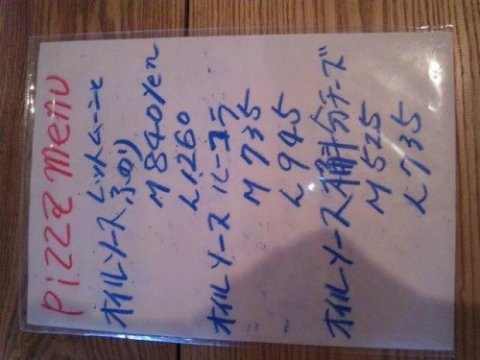 Pizza menu
オイルソース
ふのり
M 840 Yen
L 1260
オイルソース ルーコラ
M 735
L 945
オイルソース チーズ
M 525
L 735